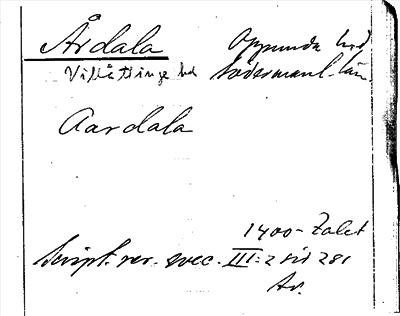 Årdala Oppunda hd
Villåttinge hd Södermanl. län
Aardala
1400-talet
Script. rer. svec. III:2 sid 281
Av.